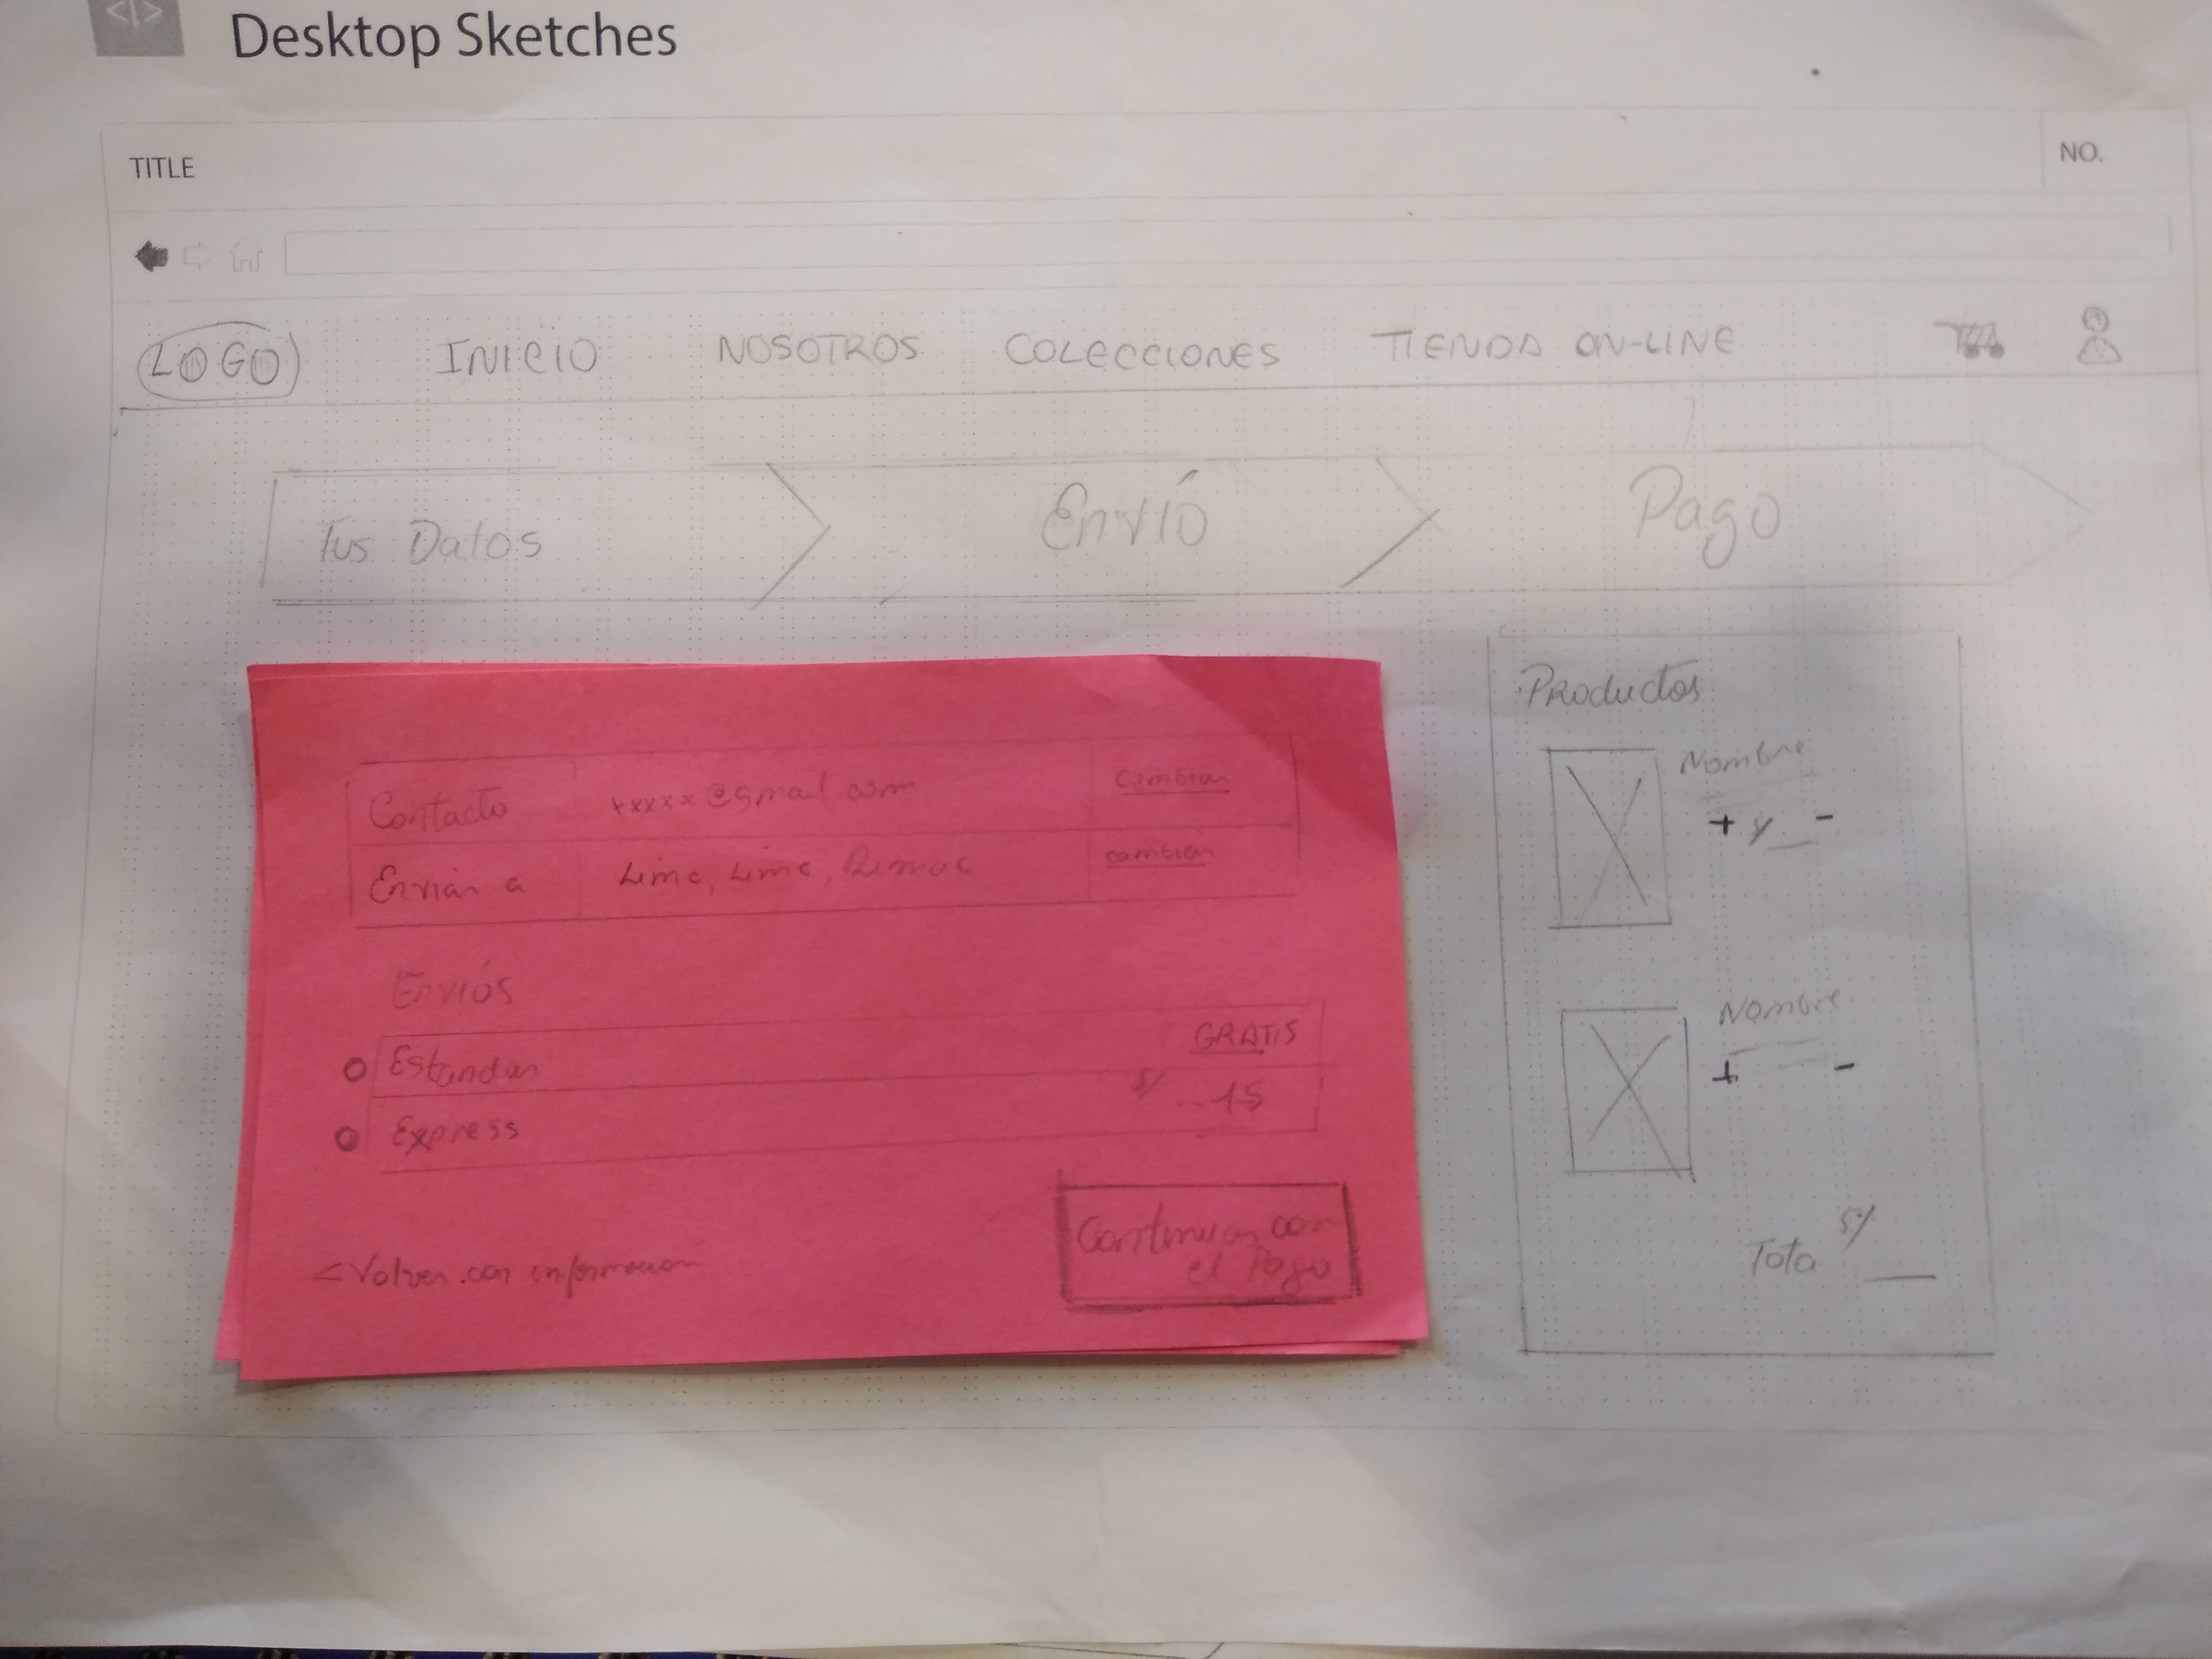 </>
Desktop Sketches
TITLE
NO.
LOGO
INICIO
NOSOTROS
COLECCIONES
TIENDA ON-LINE
Tus Datos
Envió
Pago
Contacto
xxxxx@gmail.com
Cambiar
Enviar a
Lima, Lima, Rimac
cambiar
Envíos
Estandar
GRATIS
Express
S/ 15
< Volver con informacion
Continuar con
el Pago
Productos
Nombre
+ -
Nombre
+ -
S/
Tota